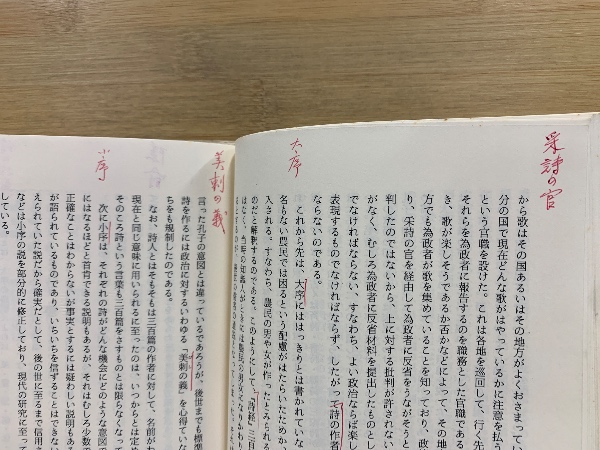 采詩の官
から歌はその国あるいはその地方がよくおさまってい
分の国で現在どんな歌がはやっているかに注意を払う
という官職を設けた。これは各地を巡回して、行く先
それらを為政者に報告するのを職務とした官職である
き、歌が楽しそうであるか否かなどによって、その地
方でも為政者が歌を集めていることを知っており、政
り、采詩の官を経由して為政者に反省をうながそうと
判したのではないから、上に対する批判が許されない
がなく、むしろ為政者に反省材料を提出したものとし
でなければならない、すなわち、よい政治ならば楽し
表現するものでなければならず、したがって詩の作者
ならないのである。
大序
これから先は、大序にははっきりとは書かれていな
名もない農民では困るという配慮がはたらいたためか、
入される。すなわち、農民の男や女が作ったとみられる
のだと解釈するのである。このようにして、『詩経』三百
美刺の義
言った孔子の意図とは違っているであろうが、後世までも標準
詩を作るには政治に対するいわゆる「美刺の義」を心得ていな
ちをも規制したのである。
なお、詩人とはそもそもは三百篇の作者に対して、名前がわ
現在と同じ意味に用いられるに至ったのは、いつからとは定め
そのころ詩という言葉も三百篇をさすものとは限らなくなって
小序
次に小序は、それぞれの詩がどんな機会にどのような意図で
にはなるほどと首肯できる説明もあるが、それはむしろ少数で
正確なことはわからないが事実とするには疑わしい説明もある
が語られているものであり、いちいちを信ずることはできない
えられていた説だから確実だとして、後の世に至るまで信用さ
などは小序の説を部分的に修正しており、現代の研究に至って
している。